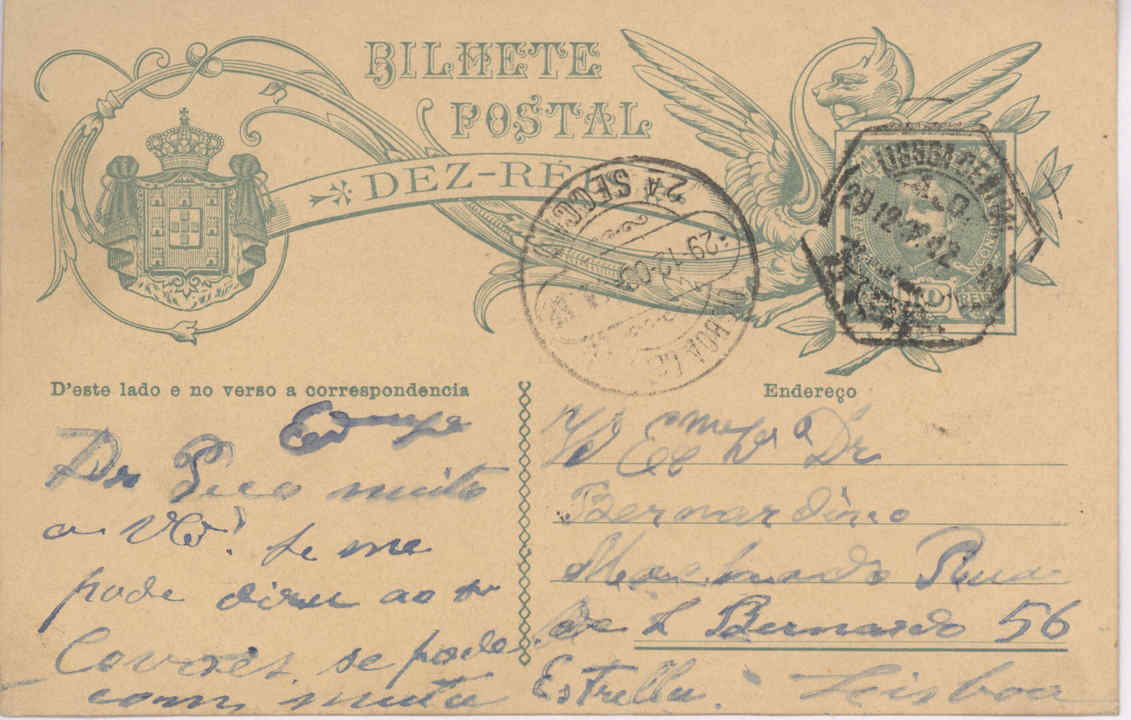 BILHETE
POSTAL
DEZ-RÉ
2A SECC
29-12-09
29 12
REIS
D'este lado e no verso a correspondencia
Endereço
Dr Peço muito
a V. se me
pode dizer ao sr
se pode
com muita
Ex Dr
Bernardino
Machado Rua
de S Bernardo 56
Estrella. Lisboa